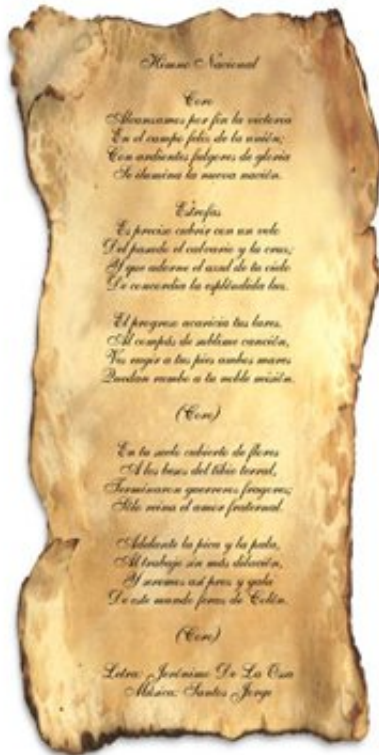 Himno Nacional
Coro
Alcanzamos por fin la victoria
En el campo feliz de la unión;
Con ardientes fulgores de gloria
Se ilumina la nueva nación.
Estrofas
Es preciso cubrir con un velo
Del pasado el calvario y la cruz;
Y que adorne el azul de tu cielo
De concordia la espléndida luz.
El progreso acaricia tus lares.
Al compás de sublime canción,
Ves rugir a tus pies ambos mares
Que dan rumbo a tu noble misión.
(Coro)
En tu suelo cubierto de flores
A los besos del tibio terral,
Terminaron guerreros fragores;
Sólo reina el amor fraternal.
Adelante la pica y la pala,
Al trabajo sin más dilación,
Y seremos así prez y gala
De este mundo feraz de Colón.
(Coro)
Letra: Jerónimo De La Ossa
Música: Santos Jorge